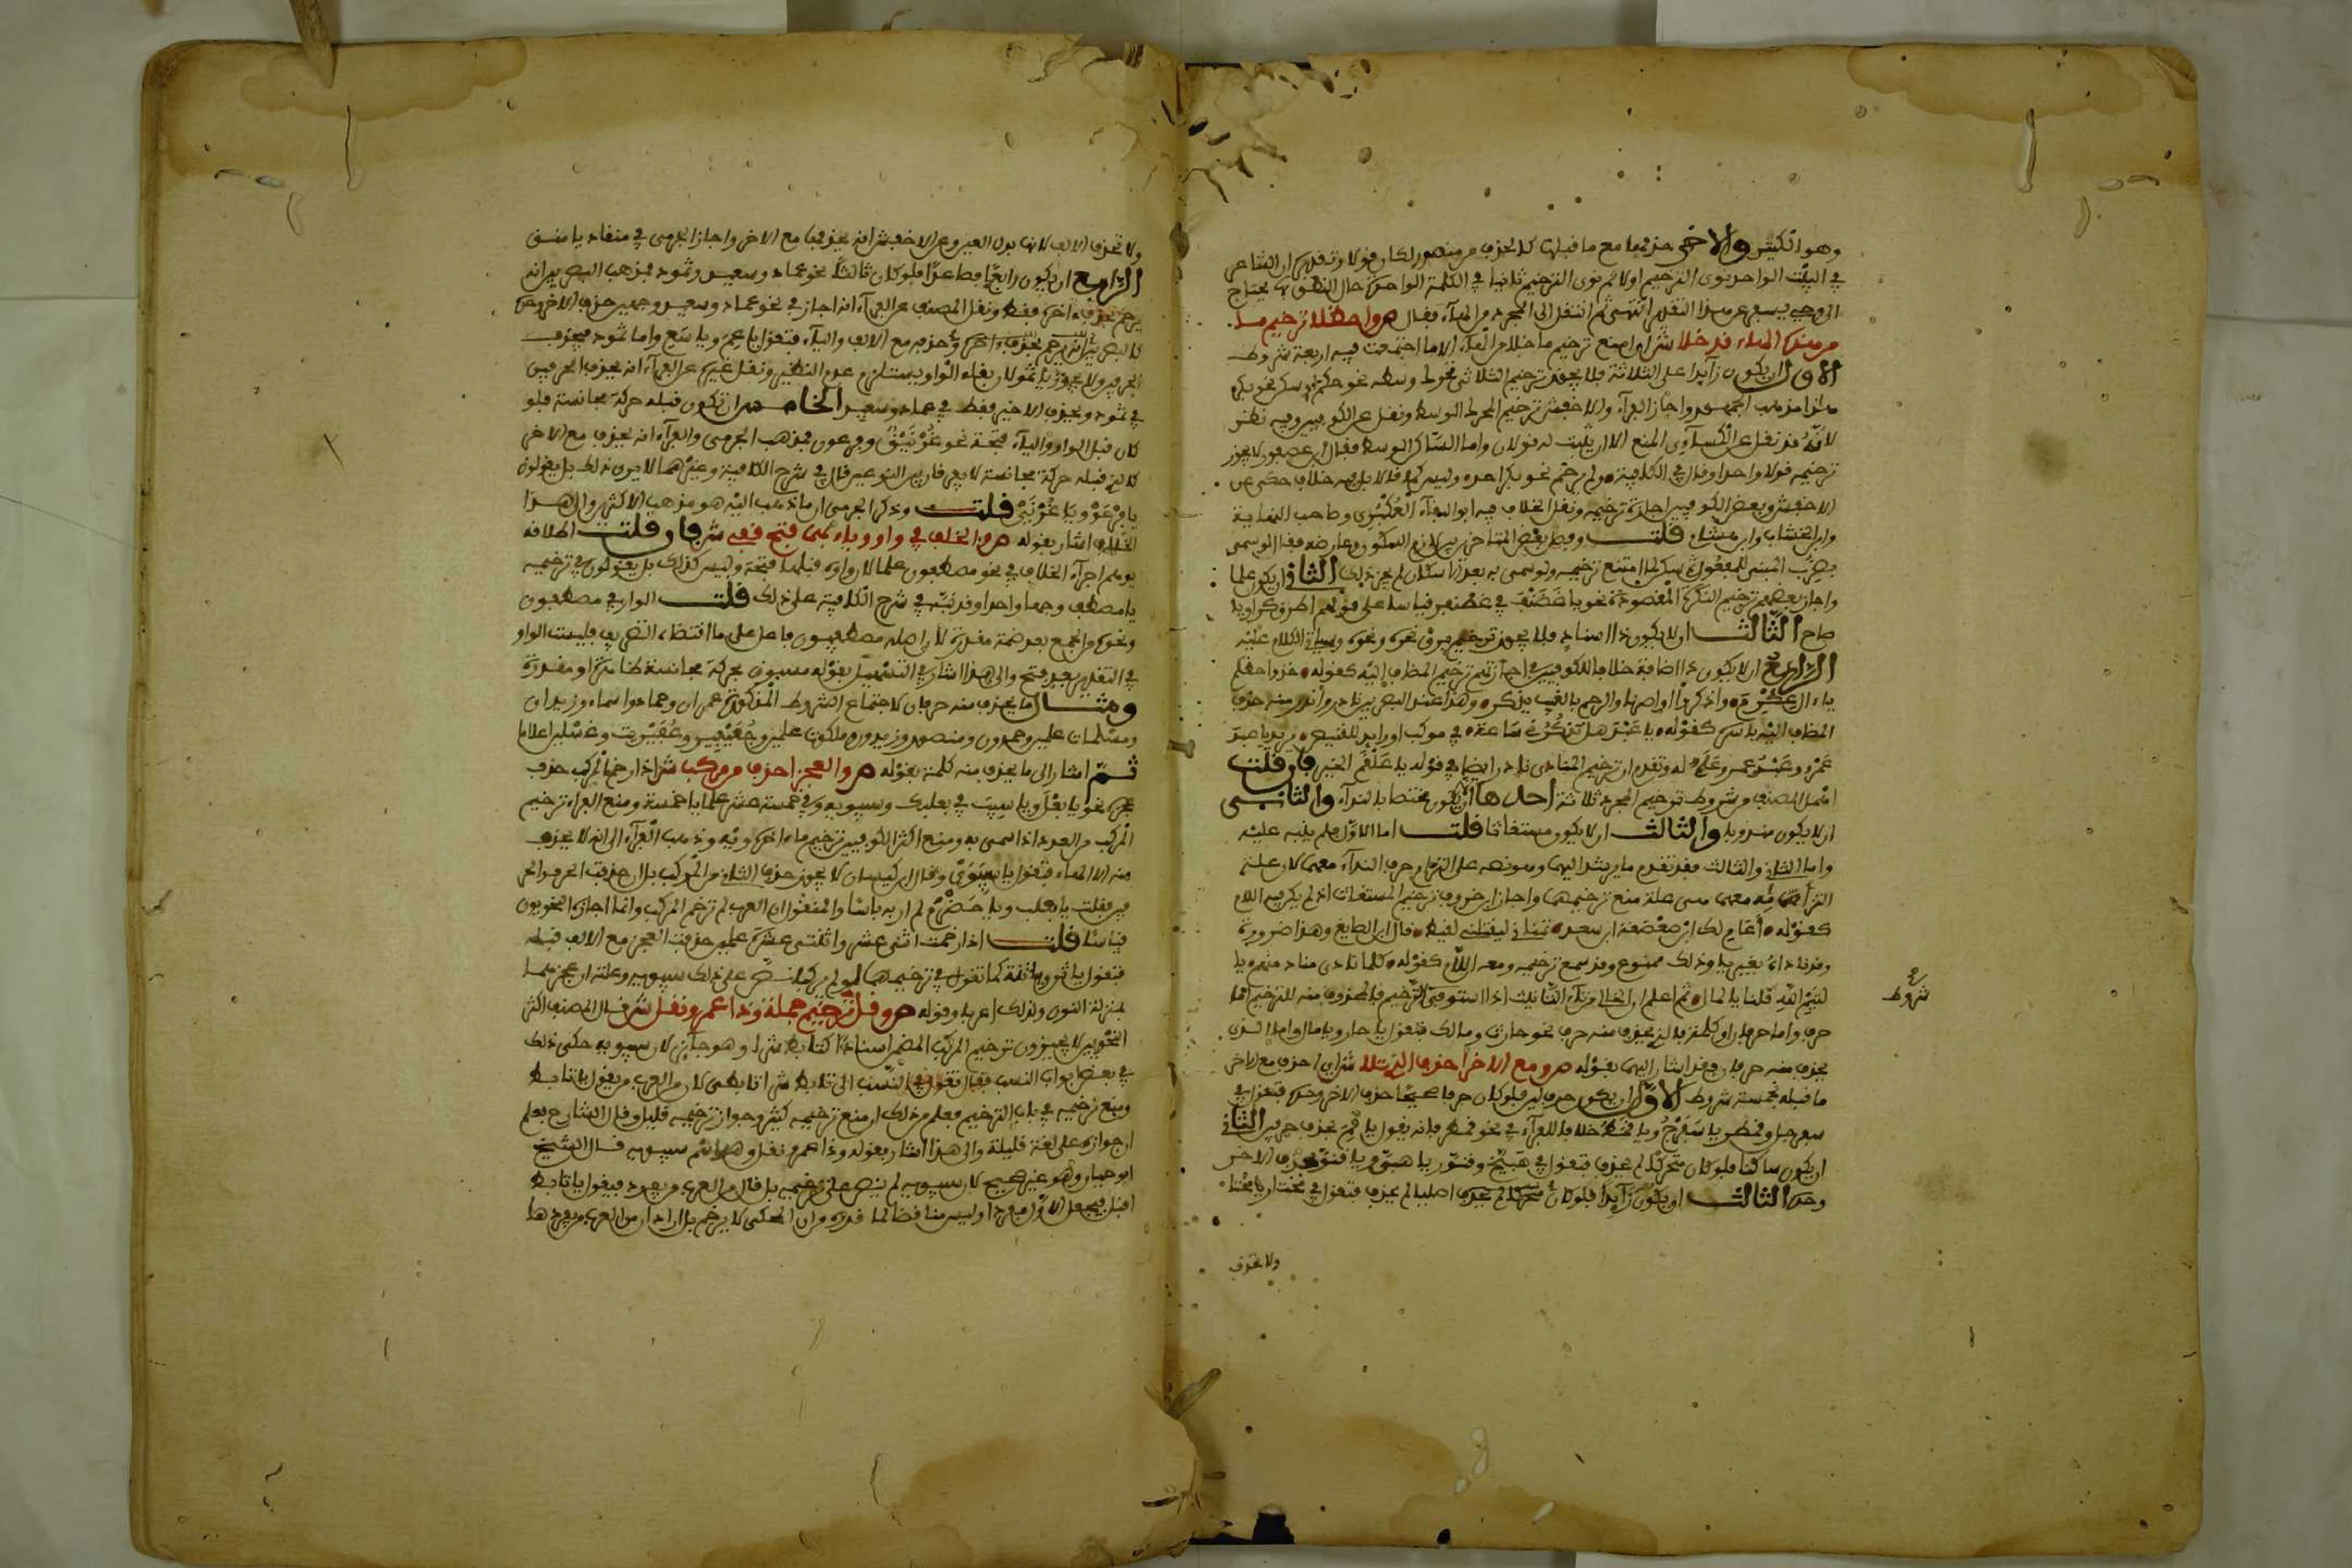 وهو الكثير والاخر حذفها مع ما قبلها كما يحذف من منصور لكان قولا وتقديره ان الشاعر
في البيت الواحد نوى الترخيم اولا ثم نوى الترخيم ثانيا في الكلمة الواحدة حال النطق بها يحتاج
الى وحي يسفر عن هذا التقدير انتهى ثم انتقل الى المجرد من الهاء فقال ص واحظلا ترخيم ما
من هذه الهاء قد خلا ش اي امنع ترخيم ما خلا من الهاء الا ما اجتمعت فيه اربعة شروط
الاول ان يكون زائدا على الثلاثة فلا يجوز ترخيم الثلاثي تحرك وسطه نحو حكم او سكن نحو بكر
هذا مذهب الجمهور واجاز الفراء والاخفش ترخيم المحرك الوسط ونقل عن الكوفيين وفيه نظر
لانه قد نقل عن الكسائي المنع الا ان يثبت له قولان واما الساكن الوسط فقال ابن عصفور لا يجوز
ترخيمه قولا واحدا وقال في الكافية ولم يرخم نحو بكر احد وليس كما قالا بل فيه خلاف حكي عن
الاخفش وبعض الكوفيين اجازة ترخيمه ونقل الخلاف فيه ابو البقاء العكبري وصاحب النهاية
وابن الخشاب وابن هشام قلت وفيد بعض المتاخرين لازم السكون وعارضه فقال لو سمي
بضرب المبني للمفعول ثم سكن لما امتنع ترخيمه ولو سمي به بعد الاسكان لم يجز ذلك الثاني ان يكون علما
واجاز بعضهم ترخيم النكرة المقصودة نحو يا غضنف في غضنفر قياسا على قولهم اطرق كرا ويا
صاح الثالث ان لا يكون ذا اسناد فلا يجوز ترخيم برق نحره ونحوه وسياتي الكلام عليه
الرابع ان لا يكون ذا اضافة خلافا للكوفيين في اجازتهم ترخيم المضاف اليه كقوله خذوا حظكم
يا ال عكرم واذكروا اواصرنا والرحم بالغيب يذكر وهذا عند البصريين نادر واندر منه حذف
المضاف اليه باسره كقوله يا عبد هل تذكرني ساعة في موكب او رايدا للقنيص يريد يا عبد
عمرو وعبد عمرو علم له وتقدم ان ترخيم المنادى نادر ايضا في قوله يا علقم الخير فان قلت
اهمل المصنف من شروط ترخيم المجرد ثلاثة احدها ان يكون مختصا بالنداء والثاني
ان لا يكون مندوبا والثالث ان لا يكون مستغاثا قلت اما الاول فلم ينبه عليه
واما الثاني والثالث فقد تقدم ما يرشد اليهما وهو نصه على التزام حرف النداء معهما لان علة
التزامه معهما هي علة منع ترخيمهما واجاز ابن خروف ترخيم المستغاث اذا لم يكن فيه اللام
كقوله اعام لك ابن صعصعة ابن سعد تمناني ليقتلني لقيط قال ابن الصايغ وهذا ضرورة
وقد ناداه بغير يا وذلك ممنوع وقد سمع ترخيمه ومعه اللام كقوله كلما نادى مناد منهم يا
لتيم الله قلنا يا لمال ثم اعلم ان الخالي من تاء التانيث اذا استوفى الترخيم فالمحذوف منه للترخيم اما
حرف واما حرفان او كلمة فالذي يحذف منه حرف نحو حارث ومالك فتقول يا حار ويا مال واما الذي
يحذف منه حرفان فقد اشار اليهما بقوله ص ومع الاخر احذف الذي تلا ش اي احذف مع الاخر
ما قبله بخمسة شروط الاول ان يكون حرف لين فلو كان حرفا صحيحا حذف الاخر وحده فتقول في
سفرجل وقمطر يا سفرج ويا قمط خلافا للفراء في نحو قمطر فانه يقول يا قم بحذف حرفين الثاني
ان يكون ساكنا فلو كان متحركا لم يحذف فتقول في هبيخ وقنور يا هبي ويا قنو بحذف الاخر
وحده الثالث ان يكون زائدا فلو كان اصليا لم يحذف فتقول في مختار يا مختا
شروط
ولا تحذف
ولا تحذف الالف لانها بدل العين وعن الاخفش انه يحذفها مع الاخر واجاز الجرمي في منقاد يا منق
الرابع ان يكون رابعا فصاعدا فلو كان ثالثا نحو عماد وسعيد وثمود فمذهب البصريين انه
يرخم بحذف اخره فقط ونقل المصنف عن الفراء انه اجاز في نحو عماد وسعيد وجهين حذف الاخر وحده
كالبصريين وحذفه مع الالف والياء فتقول يا عم ويا سع واما ثمود فيحذف
الحرفين ولا يجوز يا ثمو لان بقاء الواو يستلزم عدم النظير ونقل غيره عن الفراء انه يحذف الحرفين
في ثمود ويحذف الاخير فقط في عماد وسعيد الخامس ان تكون قبله حركة مجانسة فلو
كان قبل الواو والياء فتحة نحو غرنيق وفرعون فمذهب الجرمي والفراء انه يحذف مع الاخر
كالذي قبله حركة مجانسة لا يفرقان بين النوعين قال في شرح الكافية وغيرهما لا يرى ذلك بل يقولون
يا فرعو ويا غرني قلت وذكر الجرمي ان ما ذهب اليه هو مذهب الاكثر والى هذا
الخلاف اشار بقوله ص والخلف في واو وياء بهما فتح قفي ش فان قلت اطلاقه
يوهم اجراء الخلاف في نحو مصطفون علما لان واوه قبلها فتحة وليس كذلك بل يقولون في ترخيمه
يا مصطف وجها واحدا وقد نبه في شرح الكافية على ذلك قلت الواو في مصطفون
ونحوه من الجمع بعد ضمة مقدرة لان اصله مصطفيون فاعل على ما اقتضاه التصريف فليست الواو
في التقدير بعد فتح والى هذا اشار في التسهيل بقوله مسبوق بحركة مجانسة ظاهرة او مقدرة
ومثال ما يحذف منه حرفان لاجتماع الشروط المذكورة عمران وحماد واسماء وزيدان
ومسلمات علمين وحمدون ومنصور وزيدون وملكوت علمين وجعيبيب وعفريت وغسلين اعلاما
ثم اشار الى ما يحذف منه كلمة بقوله ص والعجز احذف من مركب ش اذا رخم المركب حذف
عجزه نحو يا بعل ويا سيب في بعلبك وسيبويه وفي خمسة عشر علما يا خمسة ومنع الفراء ترخيم
المركب من العدد اذا سمي به ومنع اكثر الكوفيين ترخيم ما اخره ويه وذهب الفراء الى انه لا يحذف
منه الا الهاء فتقول يا سيبوي وقال ابن كيسان لا يجوز حذف الثاني من المركب بل ان حذفت الحرف او الحر
فين فقلت يا بعلب ويا حضرم لم ار به باسا والمنقول ان العرب لم ترخم المركب وانما اجازه النحويون
قياسا قلت اذا رخمت اثني عشر واثنتي عشرة علمين حذفت العجز مع الالف قبله
فتقول يا اثن ويا اثنة كما تقول في ترخيمهما لو لم يركبا نص على ذلك سيبويه وعلته ان عجزهما
بمنزلة النون ولذلك اعربا وقوله ص وقل ترخيم جملة وذا عمرو نقل ش قال المصنف اكثر
النحويين لا يجيزون ترخيم المركب المضمن اسنادا كتابط شرا وهو جائز لان سيبويه حكى ذلك
في بعض ابواب النسب فقال تقول في النسب الى تابط شرا تابطي لان من العرب من يقول يا تابط
ومنع ترخيمه في باب الترخيم فعلم من ذلك ان منع ترخيمه كثير وجواز ترخيمه قليل وقال الشارح فعلم
ان جوازه على لغة قليلة والى هذا اشار بقوله وذا عمرو نقل وهو اسم سيبويه قال الشيخ
ابو حيان وهو غير صحيح لان سيبويه لم ينص على ترخيمه بل قال من العرب من يفرد فيقول يا تابط
اقبل فيجعل الاول مفردا وليس مناقضا لما قدمه من ان المحكي لا يرخم بل اراد ان من العرب من يفردها